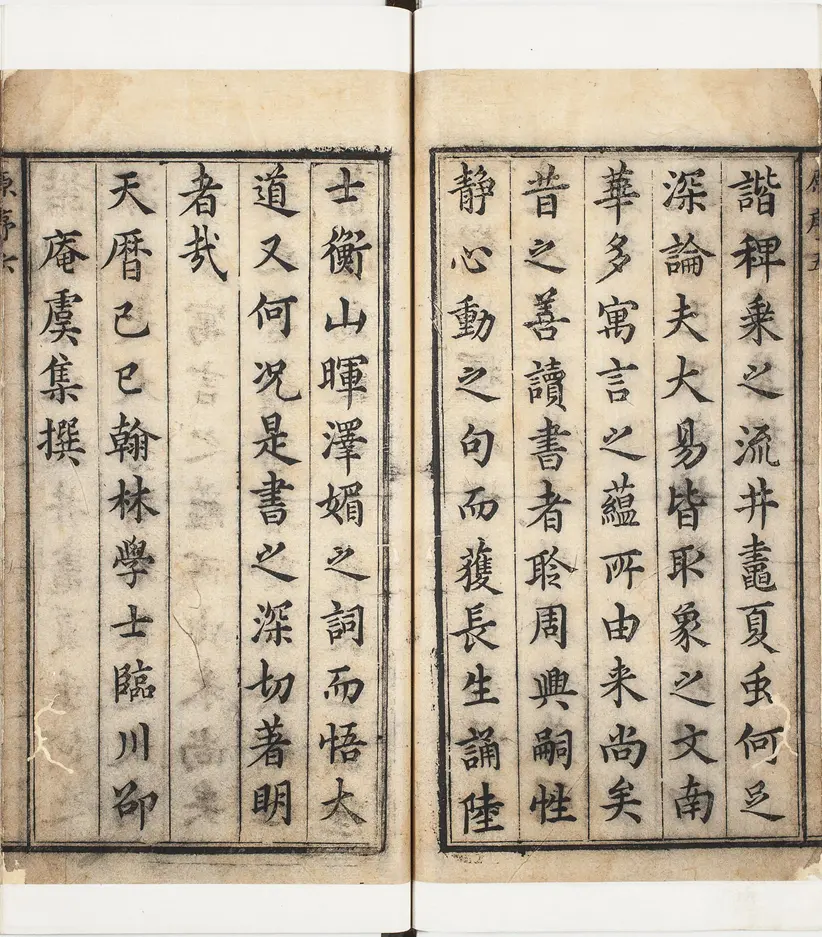 諧稗乗之流井鼃夏虫何足
深論夫大易皆取象之文南
華多寓言之蘊所由来尚矣
昔之善讀書者聆周興嗣性
静心動之句而獲長生誦陸
士衡山暉澤媚之詞而悟大
道又何况是書之深切著明
者哉
天曆己巳翰林學士臨川邵
庵虞集撰
原序五
原序六